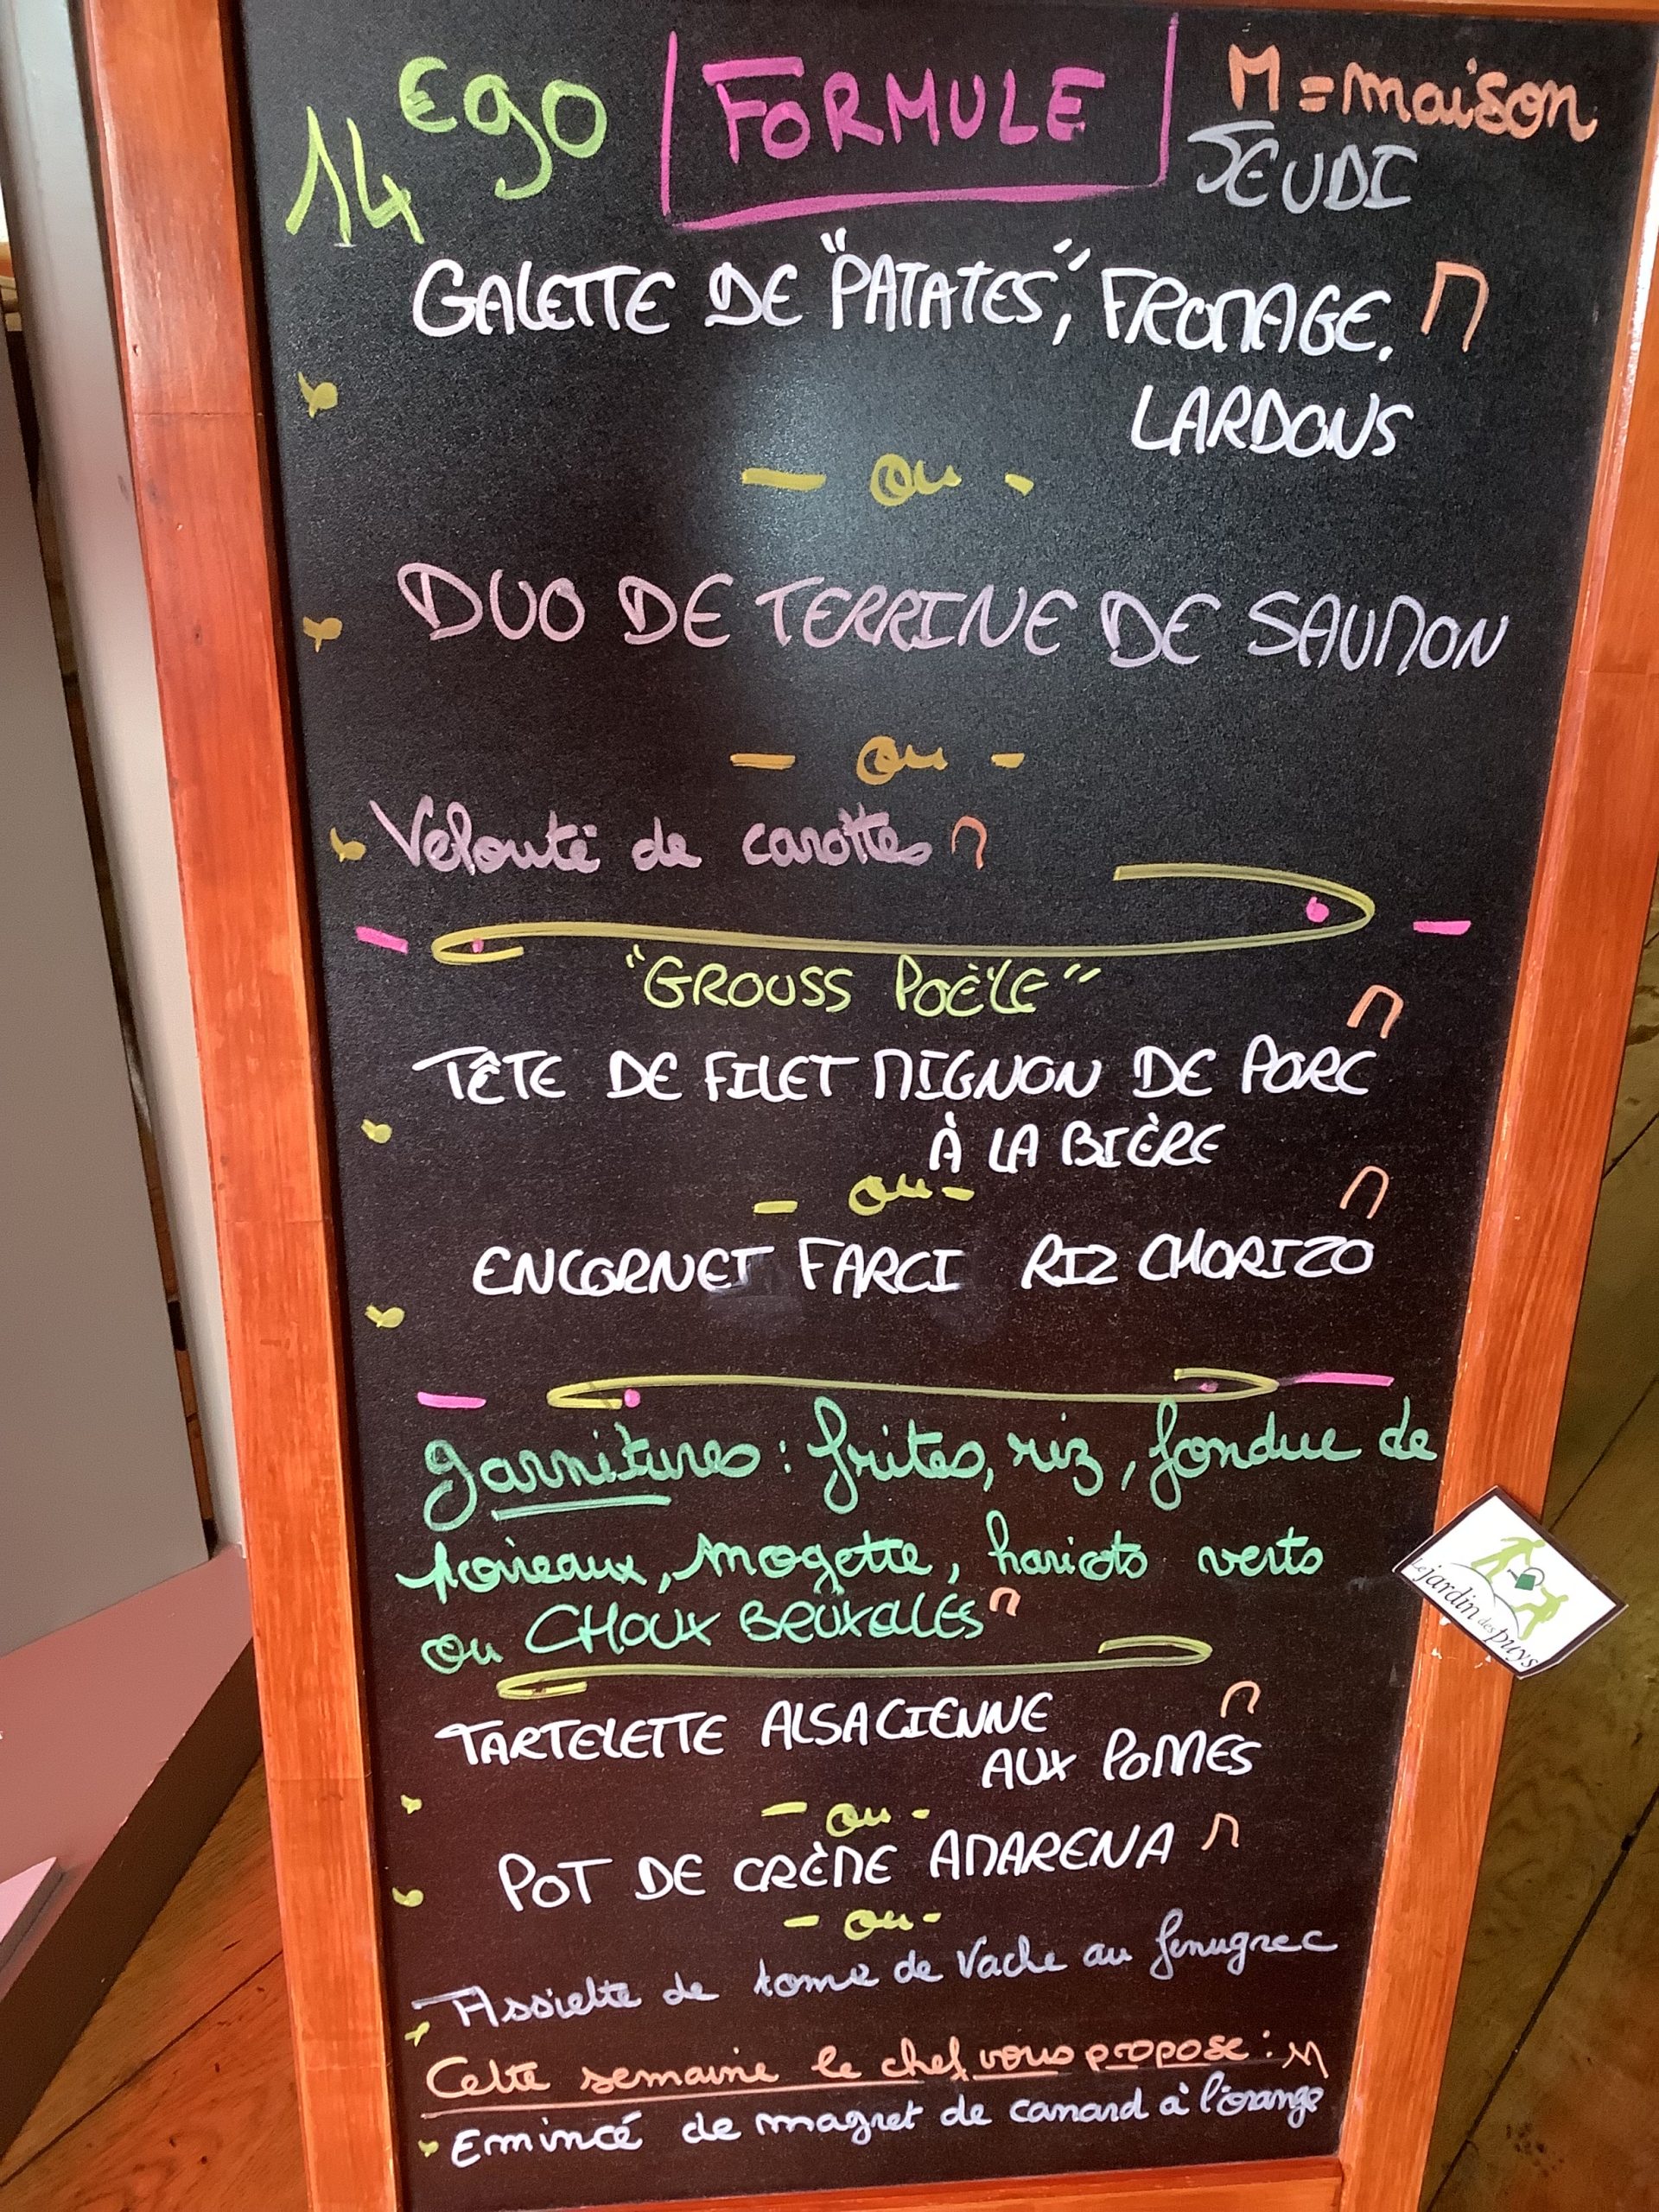 14€90 FORMULE M = maison
JEUDI
GALETTE DE "PATATES", FROMAGE, M
LARDONS
- ou -
DUO DE TERRINE DE SAUMON
- ou -
Velouté de carottes M
"GROUSS POÈLE"
M
TÊTE DE FILET MIGNON DE PORC
À LA BIÈRE
- ou -
M
ENCORNET FARCI RIZ CHORIZO
garnitures : frites, riz, fondue de
poireaux, mogette, haricots verts
ou CHOUX BRUXELLES M
TARTELETTE ALSACIENNE M
AUX POMMES
- ou -
POT DE CRÈME AMARENA M
- ou -
Assiette de tome de Vache au fenugrec
Cette semaine le chef vous propose : M
Emincé de magret de canard à l'orange
Le jardin des puys